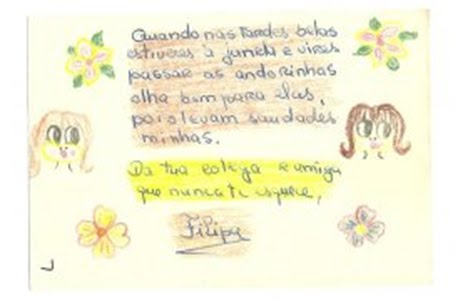 Quando nas tardes belas
estiveres à janela e vires
passar as andorinhas
olha bem para elas,
pois levam saudades
minhas.
Da tua colega e amiga
que nunca te esquece,
Filipa